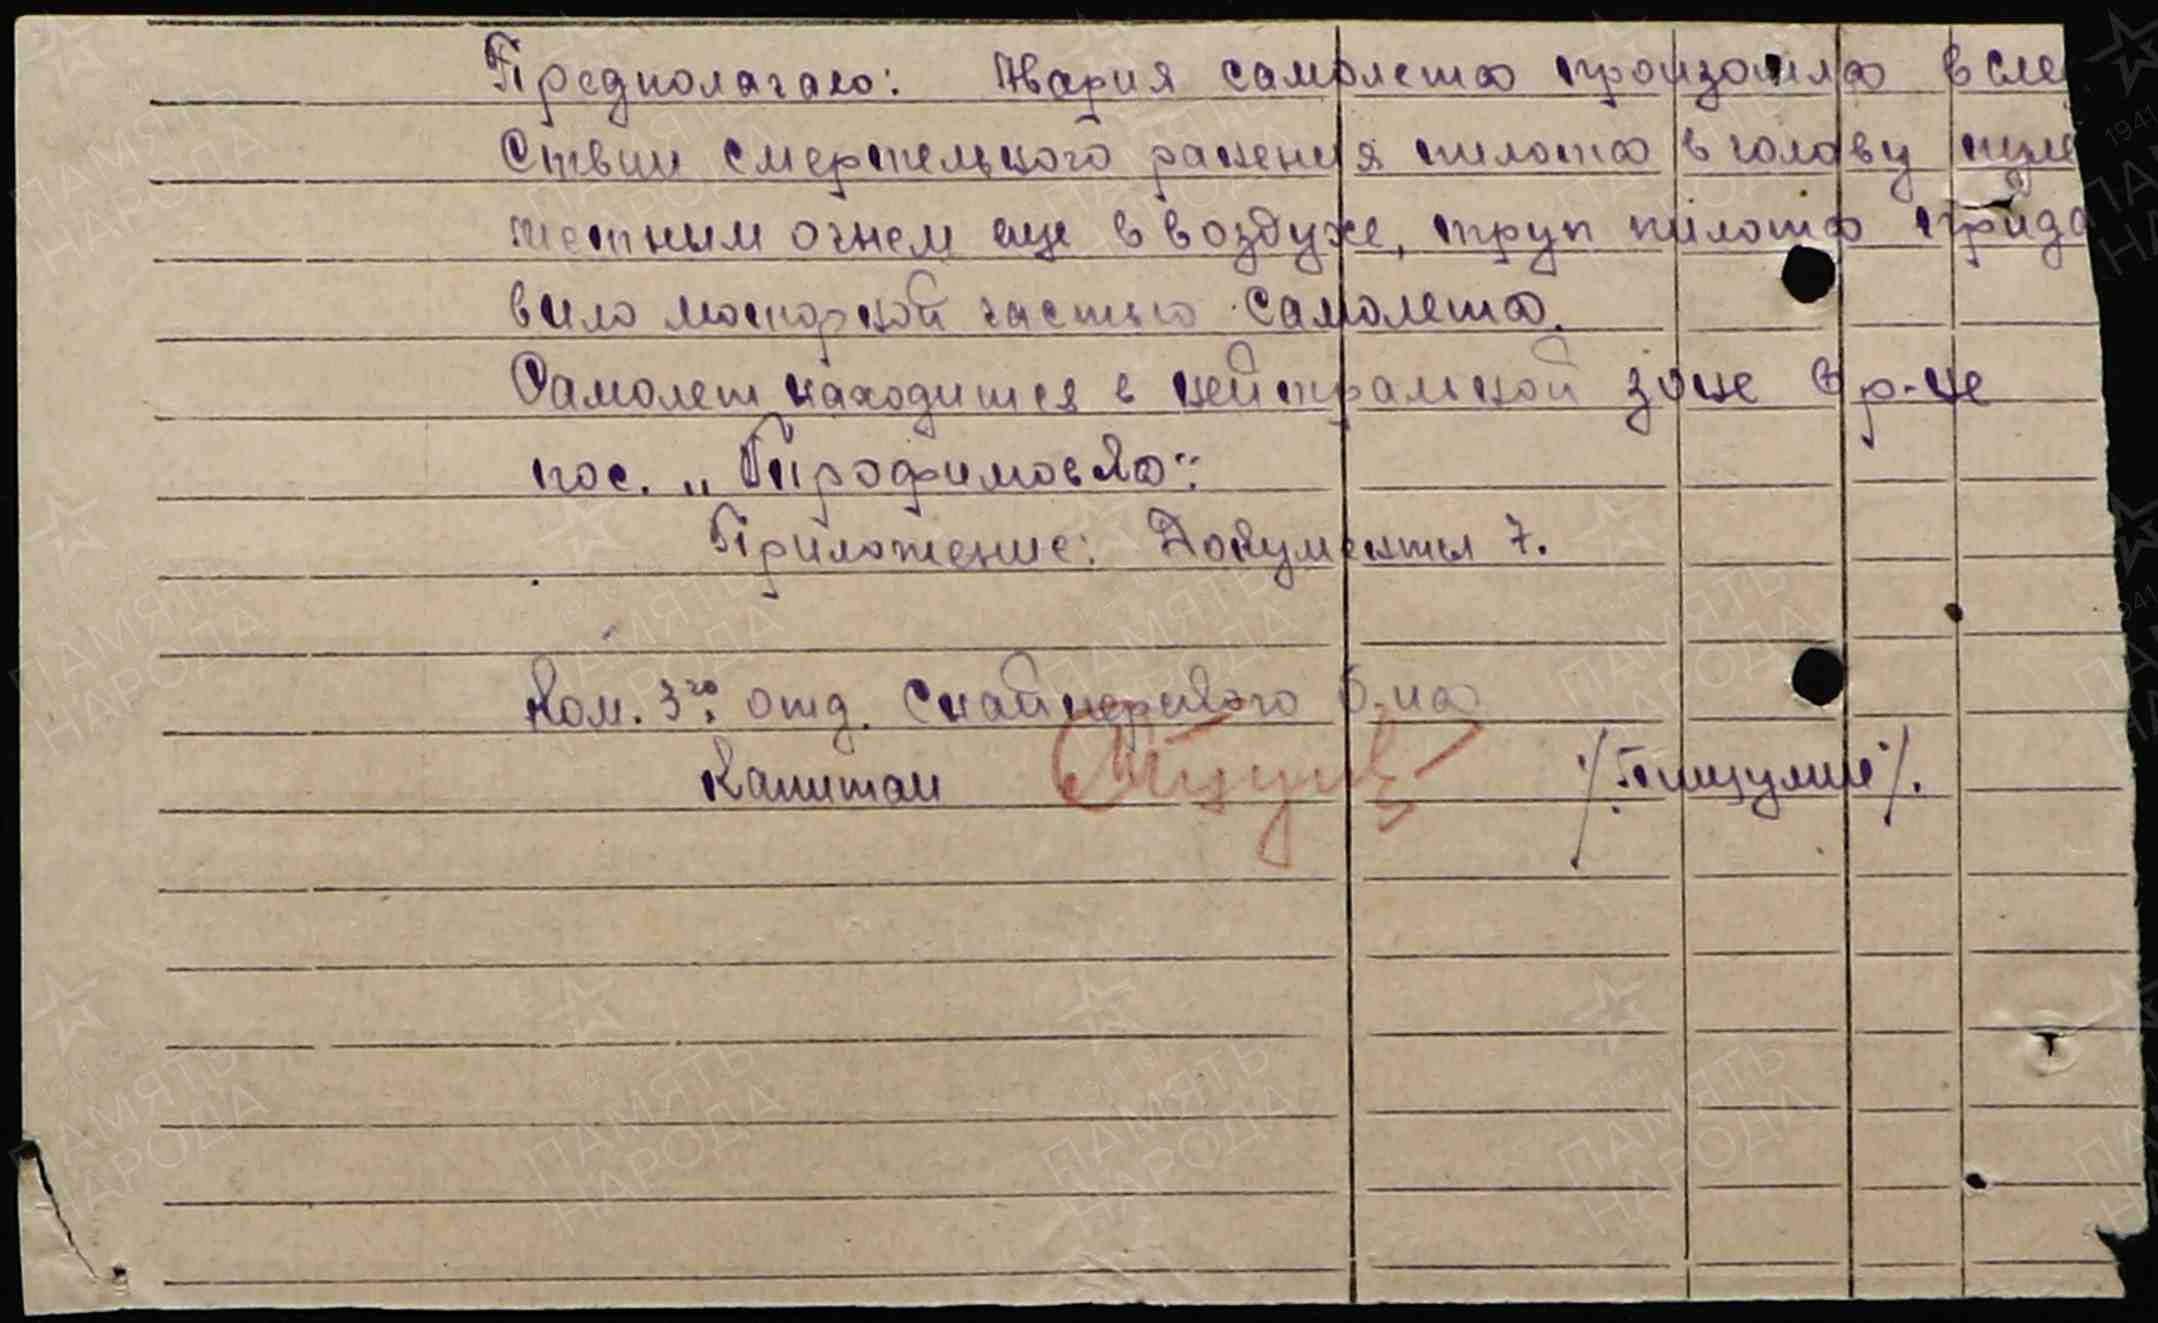 Предполагаю: Авария самолета произошла в сле
ствии смертельного ранения пилота в голову пуле
метным огнем еще в воздухе, труп пилота прида
вило моторной частью самолета.
Самолет находится в нейтральной зоне в р-не
пос. „Трофимовка".
Приложение: Документы 7.
Ком. 3го отд. Снайперского б-на
Капитан /Пищулин/.
ПАМЯТЬ НАРОДА